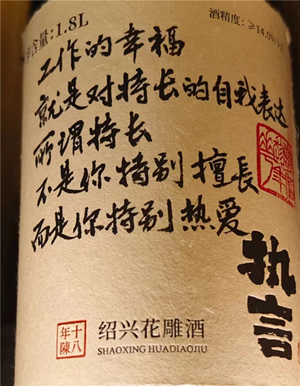 净含量:1.8L
酒精度:≥14.0%vol
工作的幸福
就是对特长的自我表达
所谓特长
不是你特别擅長
而是你特别热爱
执言
十八年陳
绍兴花雕酒
SHAOXING HUADIAOJIU